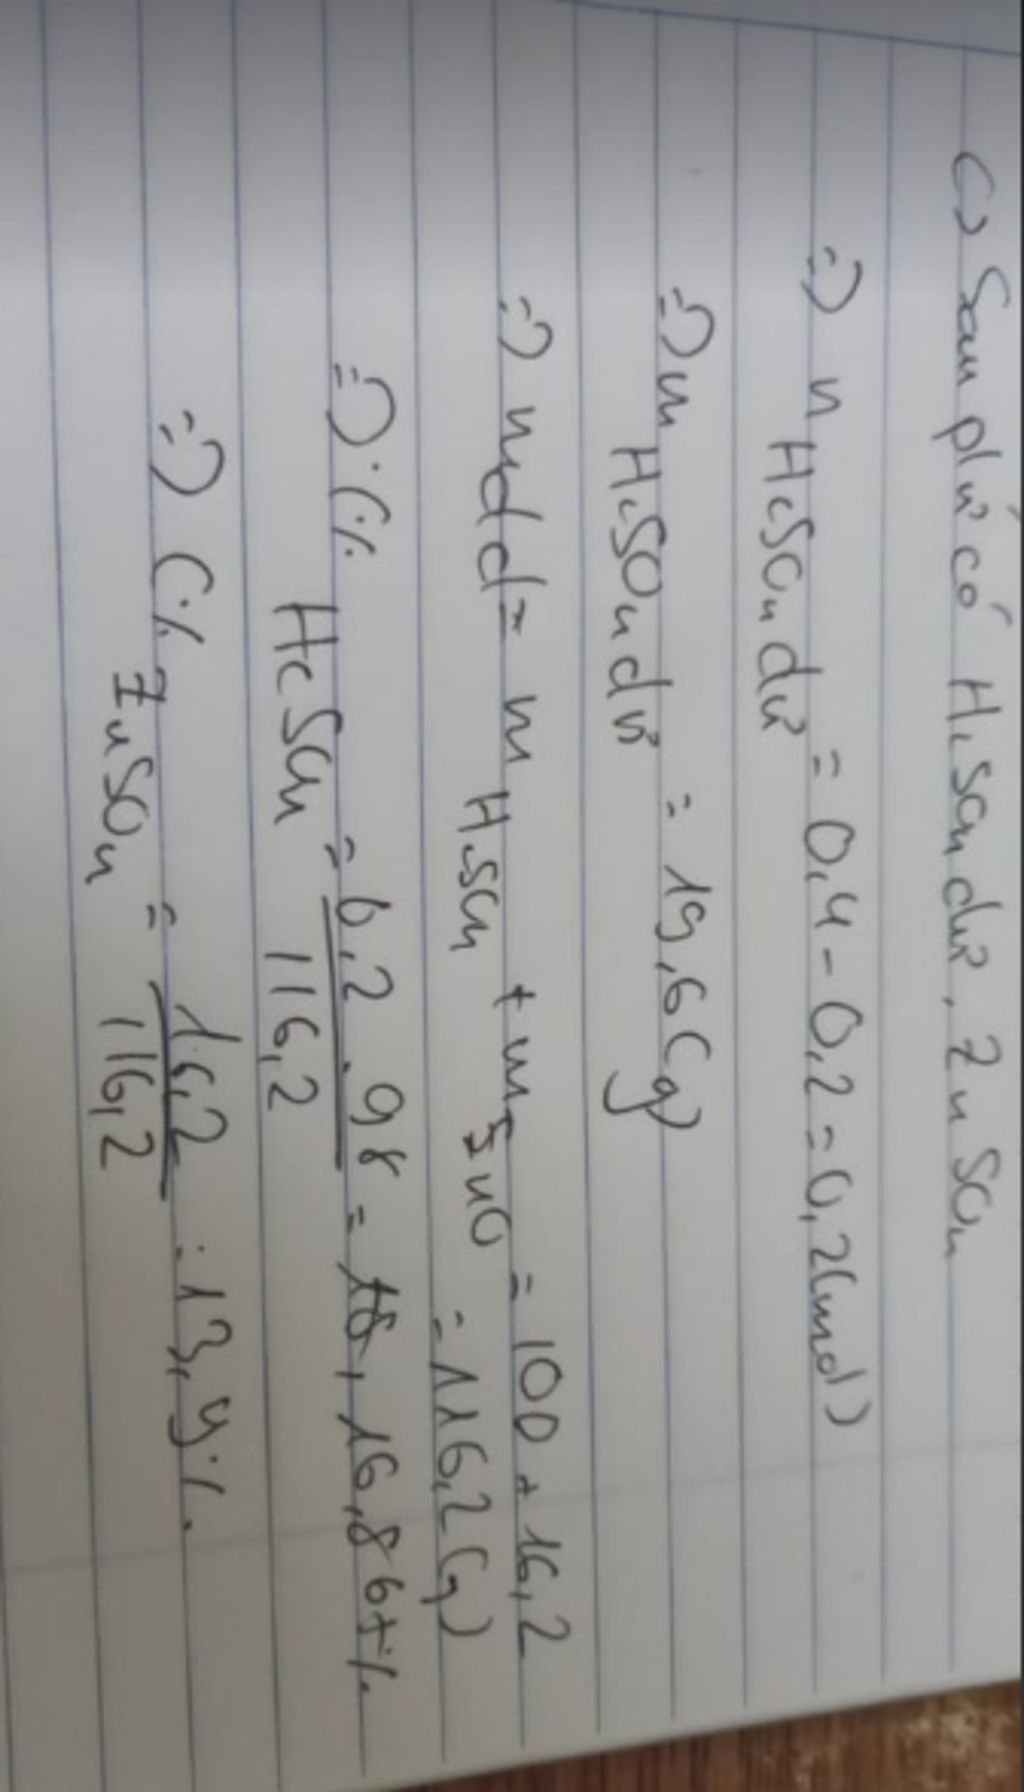 c) Sau pứ có H₂SO₄ dư, ZnSO₄
=> n H₂SO₄ dư = 0,4 - 0,2 = 0,2 (mol)
=> m H₂SO₄ dư = 19,6 (g)
=> mdd = m H₂SO₄ + m ZnO = 100 + 16,2
= 116,2 (g)
=> C% H₂SO₄ = 0,2 . 98 / 116,2 = 16,867%
=> C% ZnSO₄ = 16,2 / 116,2 = 13,9%.